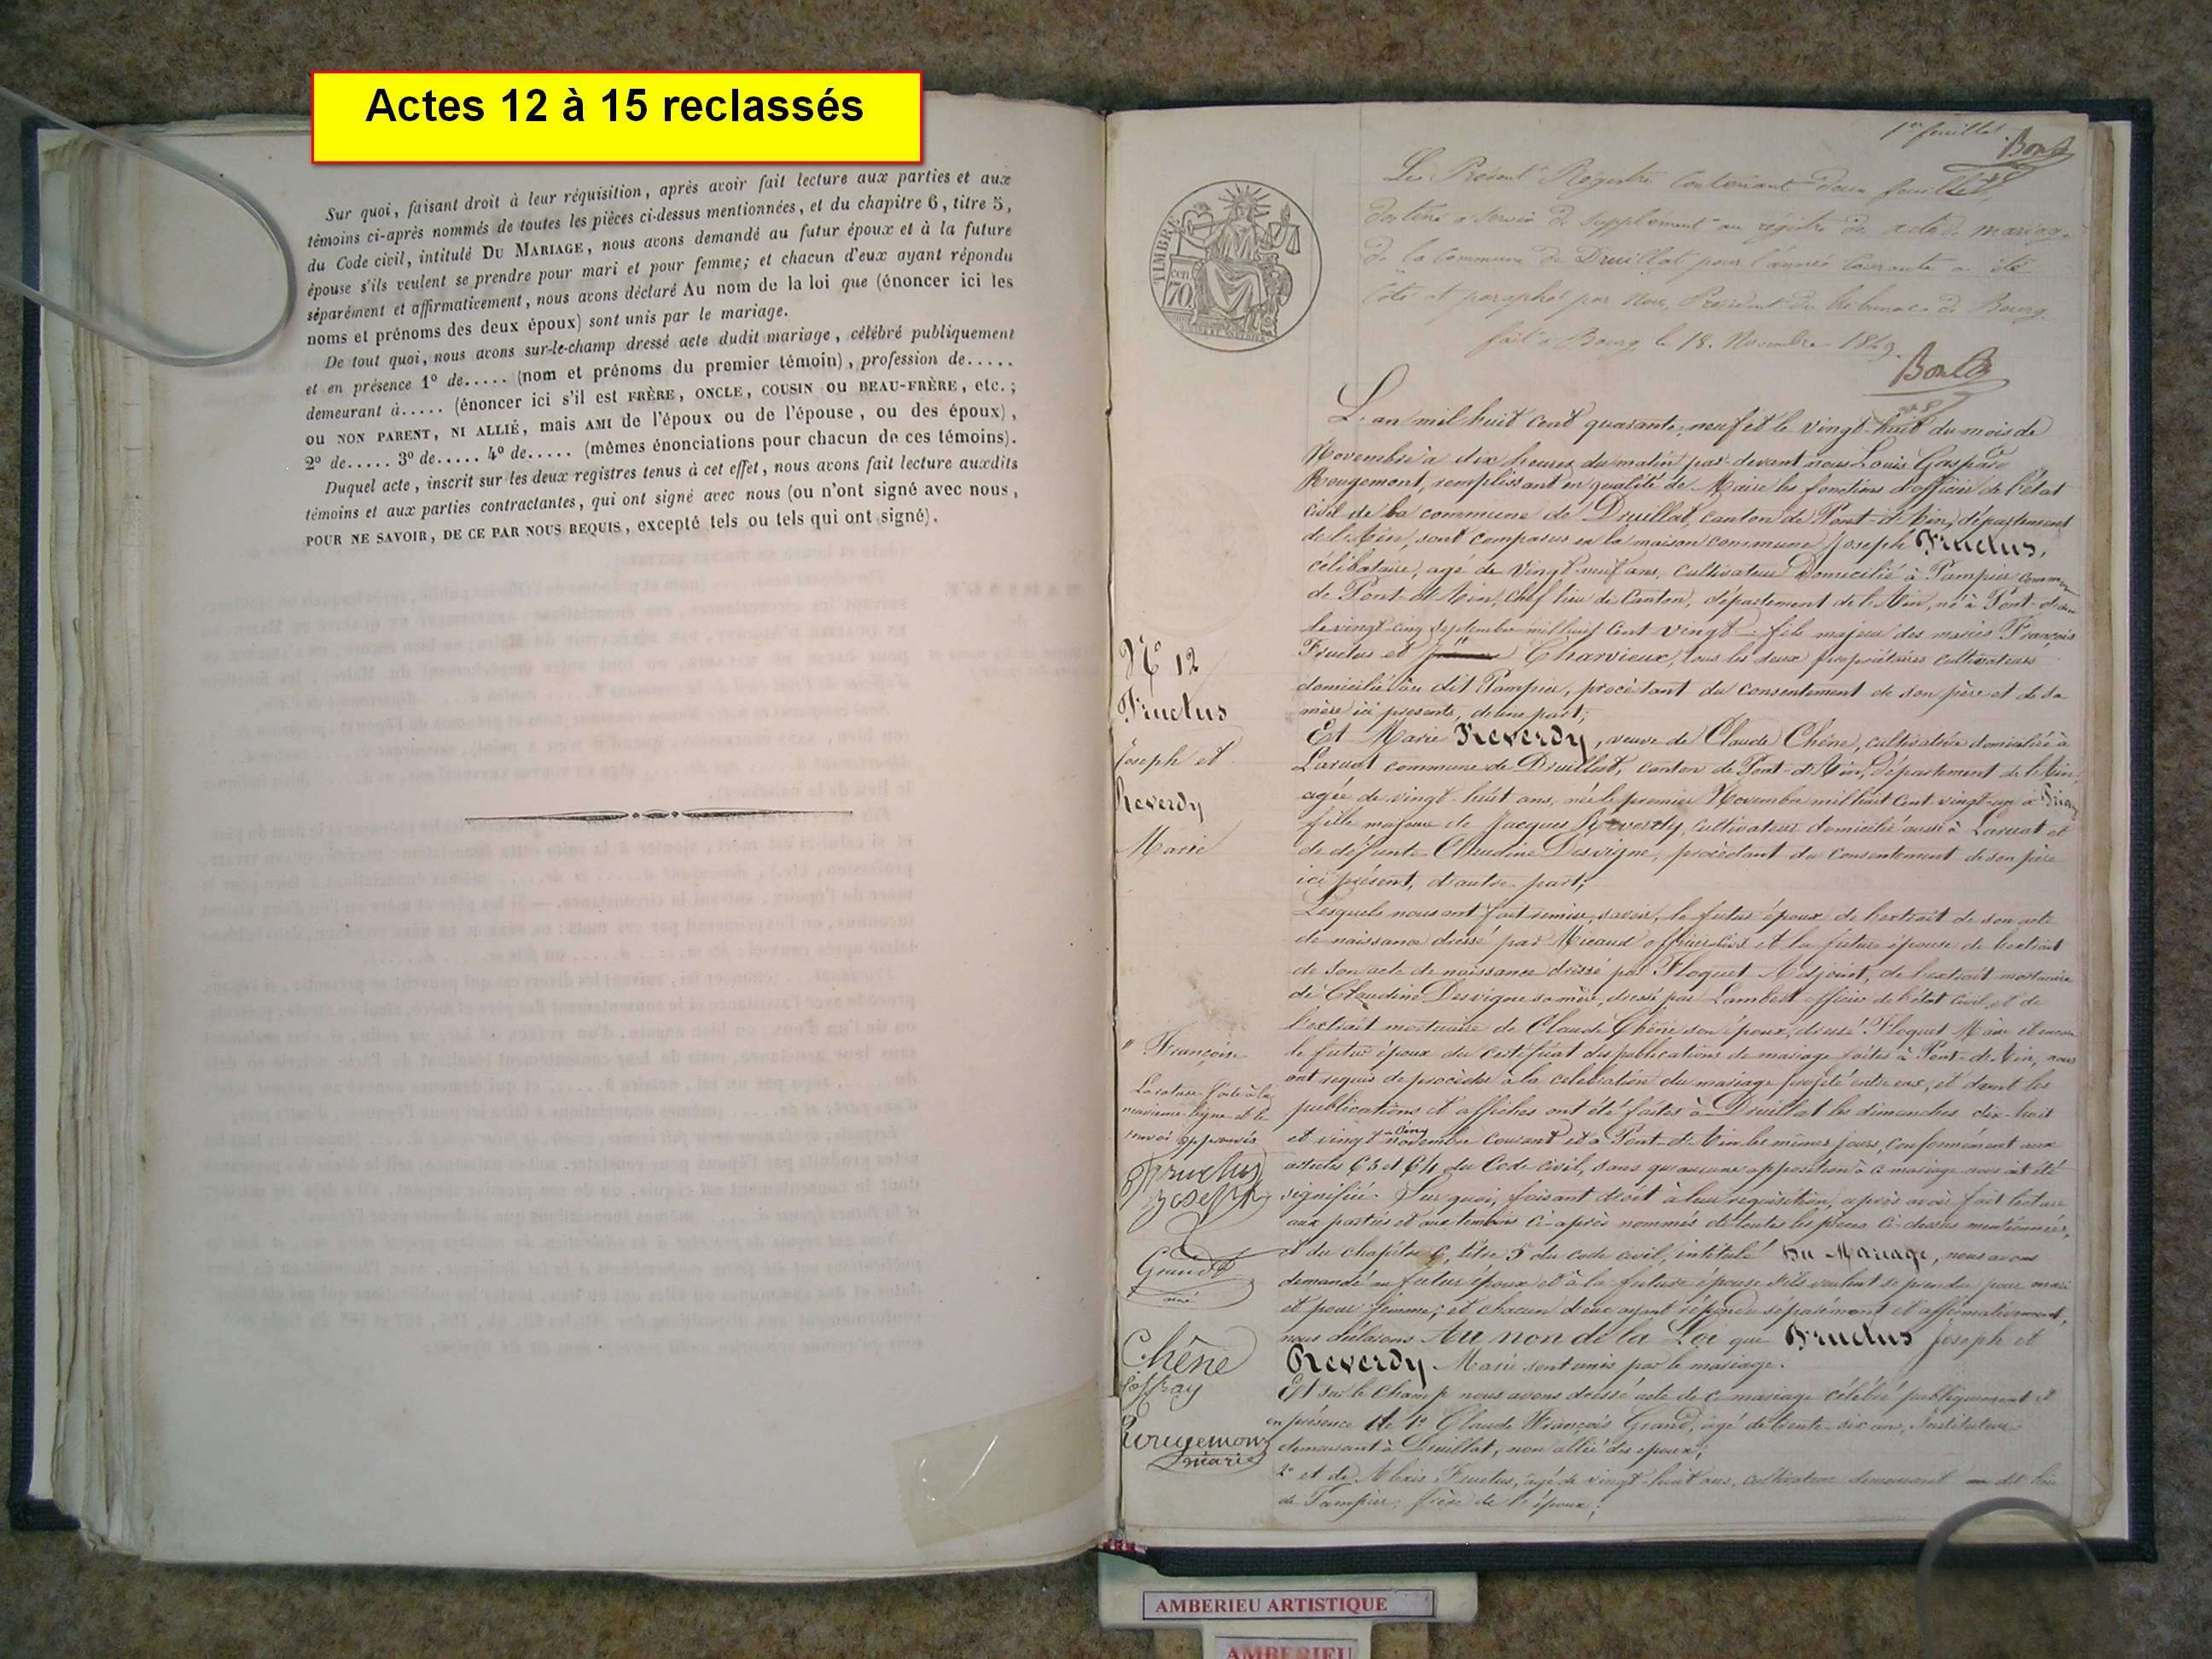 Actes 12 à 15 reclassés
Sur quoi, faisant droit à leur réquisition, après avoir fait lecture aux parties et aux
témoins ci-après nommés de toutes les pièces ci-dessus mentionnées, et du chapitre 6, titre 5,
du Code civil, intitulé DU MARIAGE, nous avons demandé au futur époux et à la future
épouse s'ils veulent se prendre pour mari et pour femme; et chacun d'eux ayant répondu
séparément et affirmativement, nous avons déclaré Au nom de la loi que (énoncer ici les
noms et prénoms des deux époux) sont unis par le mariage.
De tout quoi, nous avons sur-le-champ dressé acte dudit mariage, célébré publiquement
et en présence 1º de..... (nom et prénoms du premier témoin), profession de.....
demeurant à..... (énoncer ici s'il est FRÈRE, ONCLE, COUSIN OU BEAU-FRÈRE, etc.;
ou NON PARENT, NI ALLIÉ, mais AMI de l'époux ou de l'épouse, ou des époux),
2º de..... 3º de..... 4º de..... (mêmes énonciations pour chacun de ces témoins).
Duquel acte, inscrit sur les deux registres tenus à cet effet, nous avons fait lecture auxdits
témoins et aux parties contractantes, qui ont signé avec nous (ou n'ont signé avec nous,
POUR NE SAVOIR, DE CE PAR NOUS REQUIS, excepté tels ou tels qui ont signé).
1er feuillet
Le Présent Régistre contenant deux feuillets,
destiné a servir de supplément au régistre des actes de mariage
de la Commune de Druillat pour l'année courante a été
coté et paraphé par Nous, Président du tribunal de Bourg.
fait à Bourg le 18. Novembre 1849.
TIMBRE
cen 70
L'an mil huit cent quarante-neuf et le vingt-huit du mois de
Novembre à dix heures du matin par-devant nous Louis Gaspard
Rougemont, remplissant en qualité de Maire les fonctions d'officier de l'état
civil de la commune de Druillat, canton de Pont-d'Ain, département
de l'Ain, sont comparus en la maison commune Joseph Fructus,
célibataire, agé de vingt-neuf ans, cultivateur domicilié à Pampier commune
de Pont-d'Ain, chef lieu de Canton, département de l'Ain, né à Pont-d'Ain
le vingt-cinq septembre mil huit cent vingt - fils majeur des mariés François
Fructus et " Charvieux, tous les deux propriétaires cultivateurs
domiciliés au dit Pampier, procédant du consentement de son père et de sa
mère ici présents, d'une part;
Et Marie Reverdy, veuve de Claude Chêne, cultivatrice domiciliée à
commune de Druillat, canton de Pont-d'Ain, département de l'Ain,
agée de vingt-huit ans, née le premier Novembre mil huit cent vingt-un à
fille majeure de Jacques Reverdy, cultivateur domicilié aussi à et
de défunte Claudine Desvigne, procédant du consentement de son père
ici présent, d'autre part;
Lesquels nous ont fait remise, savoir, le futur époux de l'extrait de son acte
de naissance dressé par Micaud officier civil et la future épouse de l'extrait
de son acte de naissance dressé par Floquet Adjoint, de l'extrait mortuaire
de Claudine Desvigne sa mère, dressé par Lambert officier de l'état civil et de
l'extrait mortuaire de Claude Chêne son époux, dressé Floquet Maire et encore
le futur époux du certificat des publications de mariage faites à Pont-d'Ain, nous
ont requis de procéder à la célébration du mariage projeté entre eux, et dont les
publications et affiches ont été faites à Druillat les dimanches dix-huit
et vingt-cinq novembre courant et à Pont-d'Ain les mêmes jours, conformément aux
articles 63 et 64 du Code civil, sans qu'aucune opposition à ce mariage nous ait été
signifiée. Sur quoi, faisant droit à leur réquisition, après avoir fait lecture
aux parties et aux témoins ci-après nommés de toutes les pièces ci-dessus mentionnées,
et du chapitre 6, titre 5 du code civil, intitulé Du Mariage, nous avons
demandé au futur époux et à la future épouse s'ils veulent se prendre pour mari
et pour femme; et chacun d'eux ayant répondu séparément et affirmativement,
nous déclarons Au nom de la Loi que Fructus Joseph et
Reverdy Marie sont unis par le mariage.
Et sur le champ nous avons dressé acte de ce mariage célébré publiquement et
en présence de 1º Claude François Grand, agé de trente-six ans, Instituteur
demeurant à Druillat, non allié des époux;
2º et de Alexis Fructus, agé de vingt-huit ans, cultivateur demeurant au dit lieu
de Pampier, frère de l'époux;
Nº 12
Fructus
Joseph et
Reverdy
Marie
" Françoise
La rature faite à la
neuvième ligne et le
renvoi approuvés
Fructus
Joseph
Grand
Chêne
Joffray
Rougemont
maire
AMBERIEU ARTISTIQUE
AMBERIEU